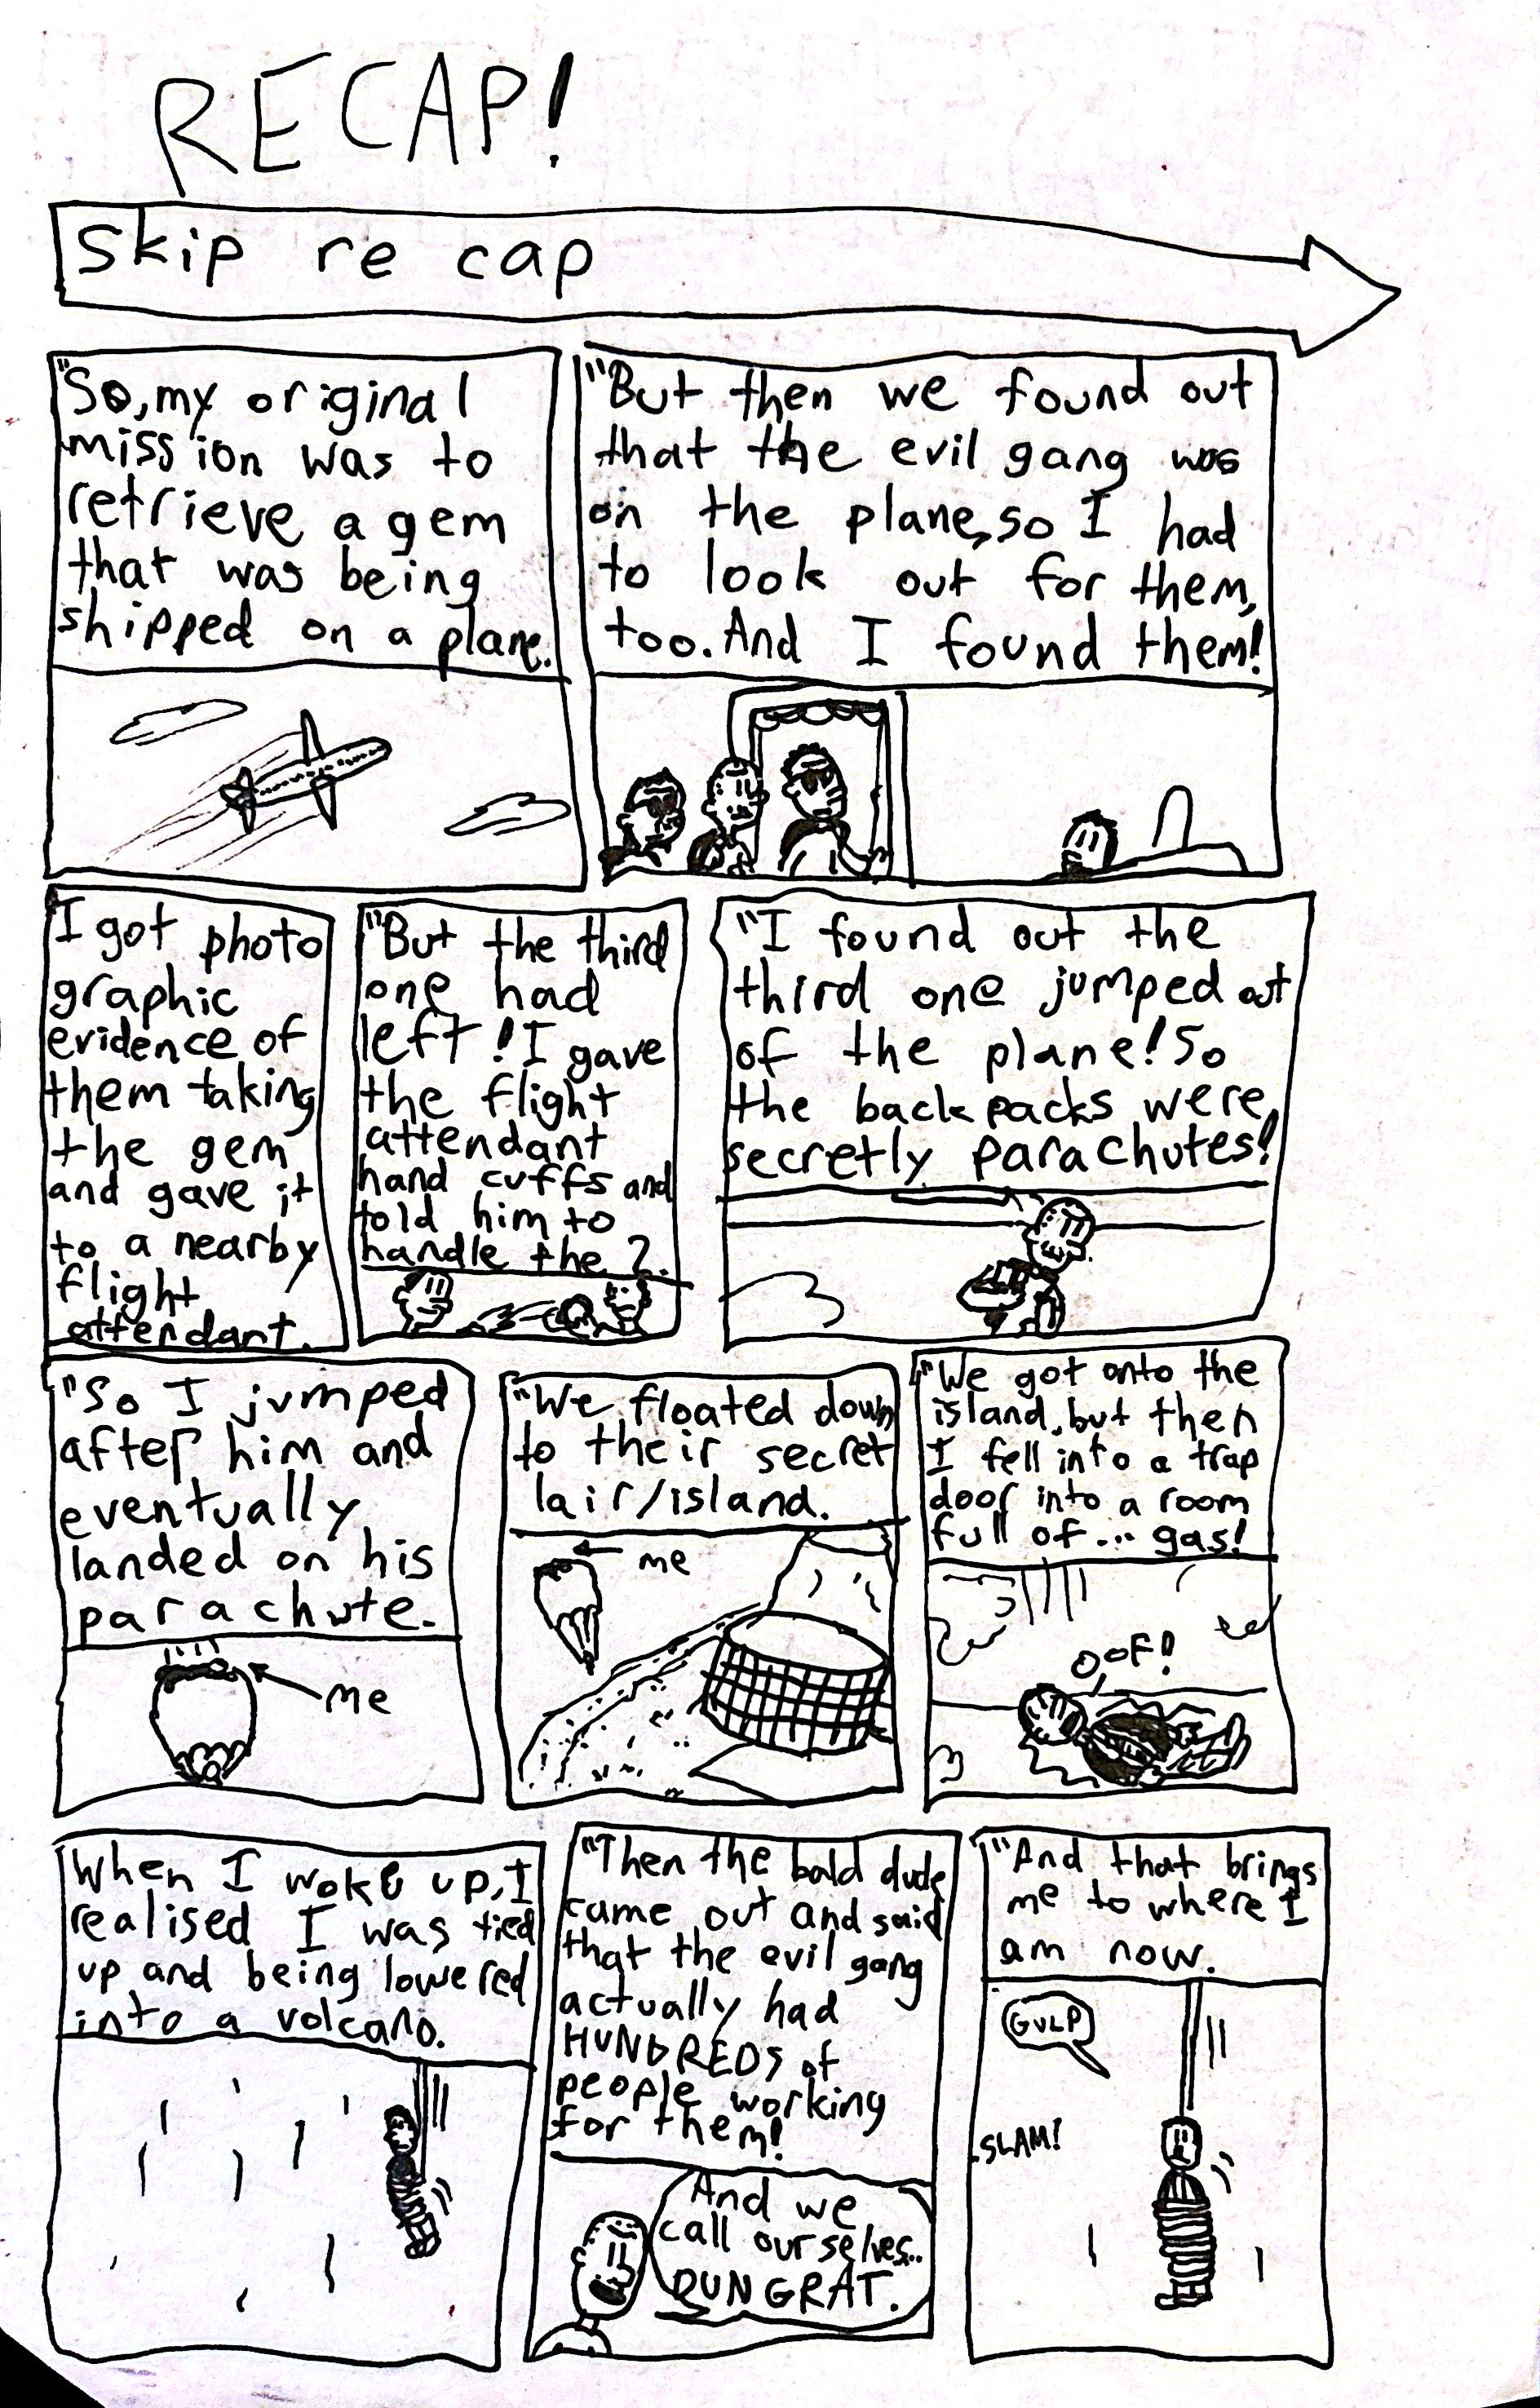 RECAP!
skip re cap
"So, my original
mission was to
retrieve a gem
that was being
shipped on a plane.
"But then we found out
that the evil gang was
on the plane, so I had
to look out for them,
too. And I found them!
"I got photo
graphic
evidence of
them taking
the gem
and gave it
to a nearby
flight
attendant.
"But the third
one had
left! I gave
the flight
attendant
hand cuffs and
told him to
handle the 2.
"I found out the
third one jumped out
of the plane! So
the backpacks were
secretly parachutes!
"So I jumped
after him and
eventually
landed on his
parachute.
me
"We floated down
to their secret
lair/island.
me
"We got onto the
island, but then
I fell into a trap
door into a room
full of... gas!
OOF!
When I woke up, I
realised I was tied
up and being lowered
into a volcano.
"Then the bald dude
came out and said
that the evil gang
actually had
HUNDREDS of
people working
for them!
And we
call ourselves..
DUNGRAT.
"And that brings
me to where I
am now.
GULP
SLAM!